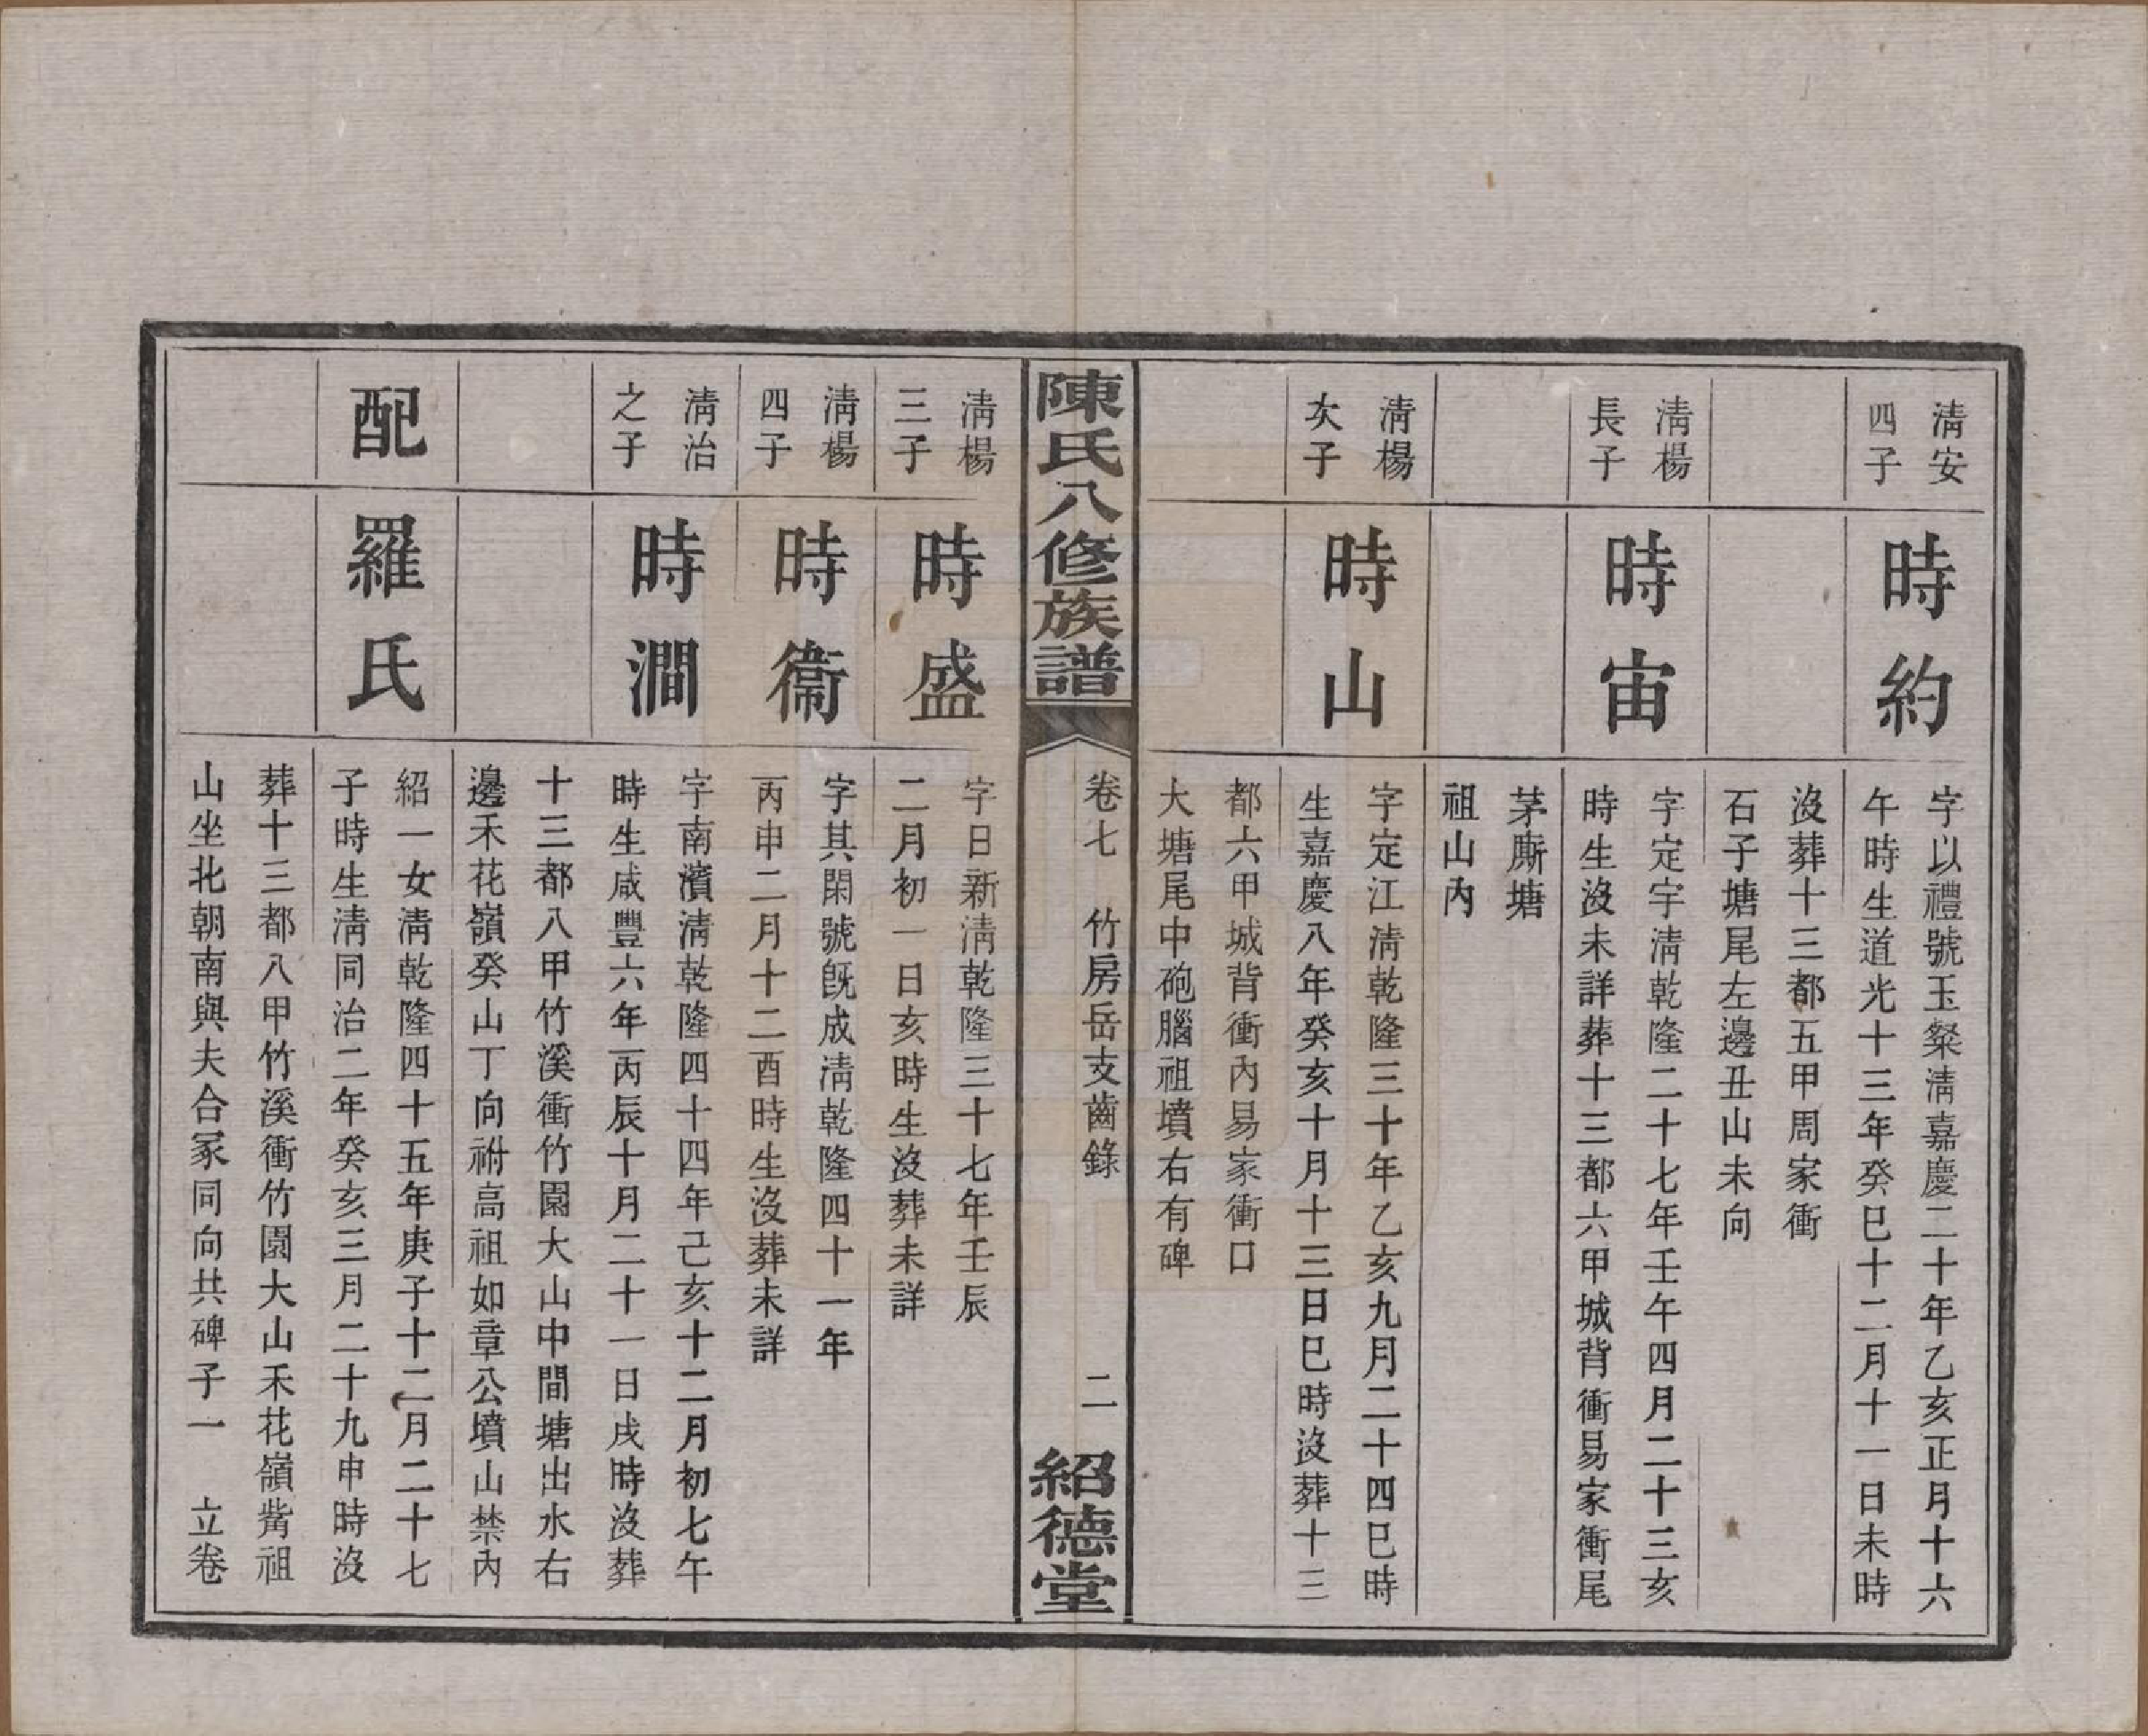 清安
四子
時約
字以禮號玉粲清嘉慶二十年乙亥正月十六
午時生道光十三年癸巳十二月十一日未時
沒葬十三都五甲周家衝
石子塘尾左邊丑山未向
清楊
長子
時宙
字定宇清乾隆二十七年壬午四月二十三亥
時生沒未詳葬十三都六甲城背衝易家衝尾
茅廝塘
祖山內
清楊
次子
時山
字定江清乾隆三十年乙亥九月二十四巳時
生嘉慶八年癸亥十月十三日巳時沒葬十三
都六甲城背衝內易家衝口
大塘尾中砲腦祖墳右有碑
陳氏八修族譜
卷七 竹房岳支齒錄
二
紹德堂
清楊
三子
時盛
字日新清乾隆三十七年壬辰
二月初一日亥時生沒葬未詳
清楊
四子
時衞
字其閑號旣成清乾隆四十一年
丙申二月十二酉時生沒葬未詳
清治
之子
時澗
字南濱清乾隆四十四年己亥十二月初七午
時生咸豐六年丙辰十月二十一日戌時沒葬
十三都八甲竹溪衝竹園大山中間塘出水右
邊禾花嶺癸山丁向祔高祖如章公墳山禁內
配
羅氏
紹一女清乾隆四十五年庚子十二月二十七
子時生清同治二年癸亥三月二十九申時沒
葬十三都八甲竹溪衝竹園大山禾花嶺觜祖
山坐北朝南與夫合冢同向共碑子一 立卷